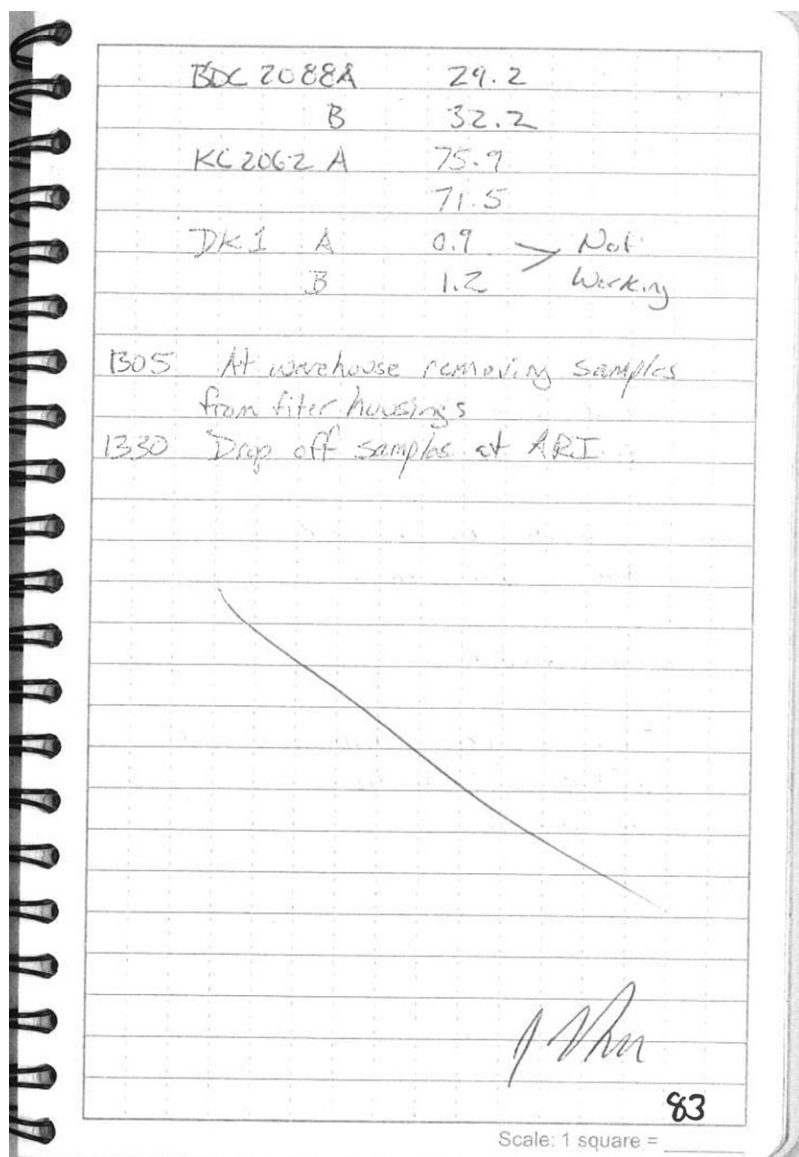 BDC 2088A 29.2
B 32.2
KC 2062 A 75.9
71.5
DK1 A 0.9 Not
B 1.2 Working
1305 At warehouse removing samples
from filter housings
1330 Drop off samples at ARI
83
Scale: 1 square =